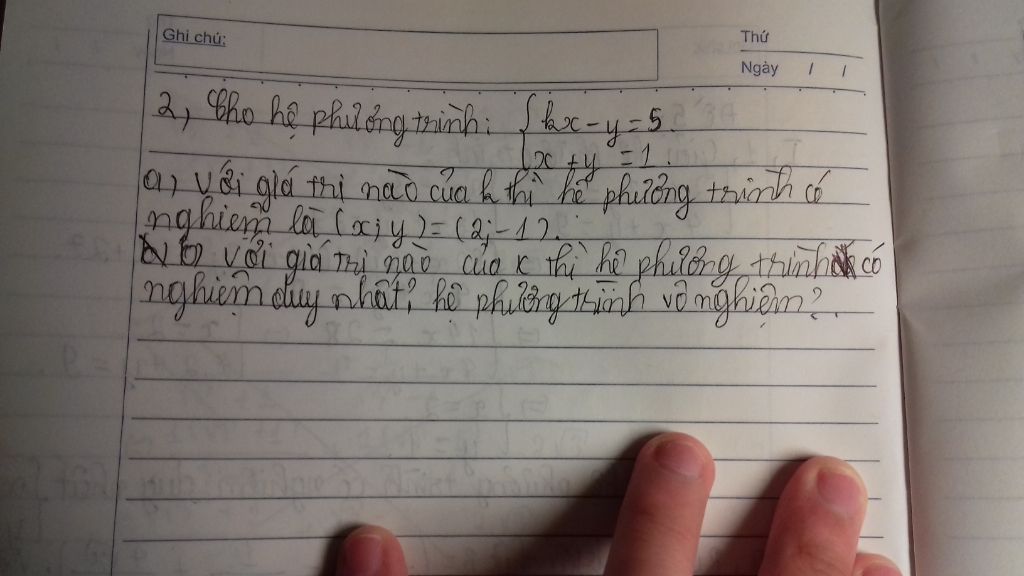 Ghi chú:
Thứ
Ngày / /
2, Cho hệ phương trình: { kx - y = 5.
x + y = 1.
a, Với giá trị nào của k thì hệ phương trình có
nghiệm là (x; y) = (2; -1).
b) Với giá trị nào của k thì hệ phương trình có
nghiệm duy nhất? hệ phương trình vô nghiệm?